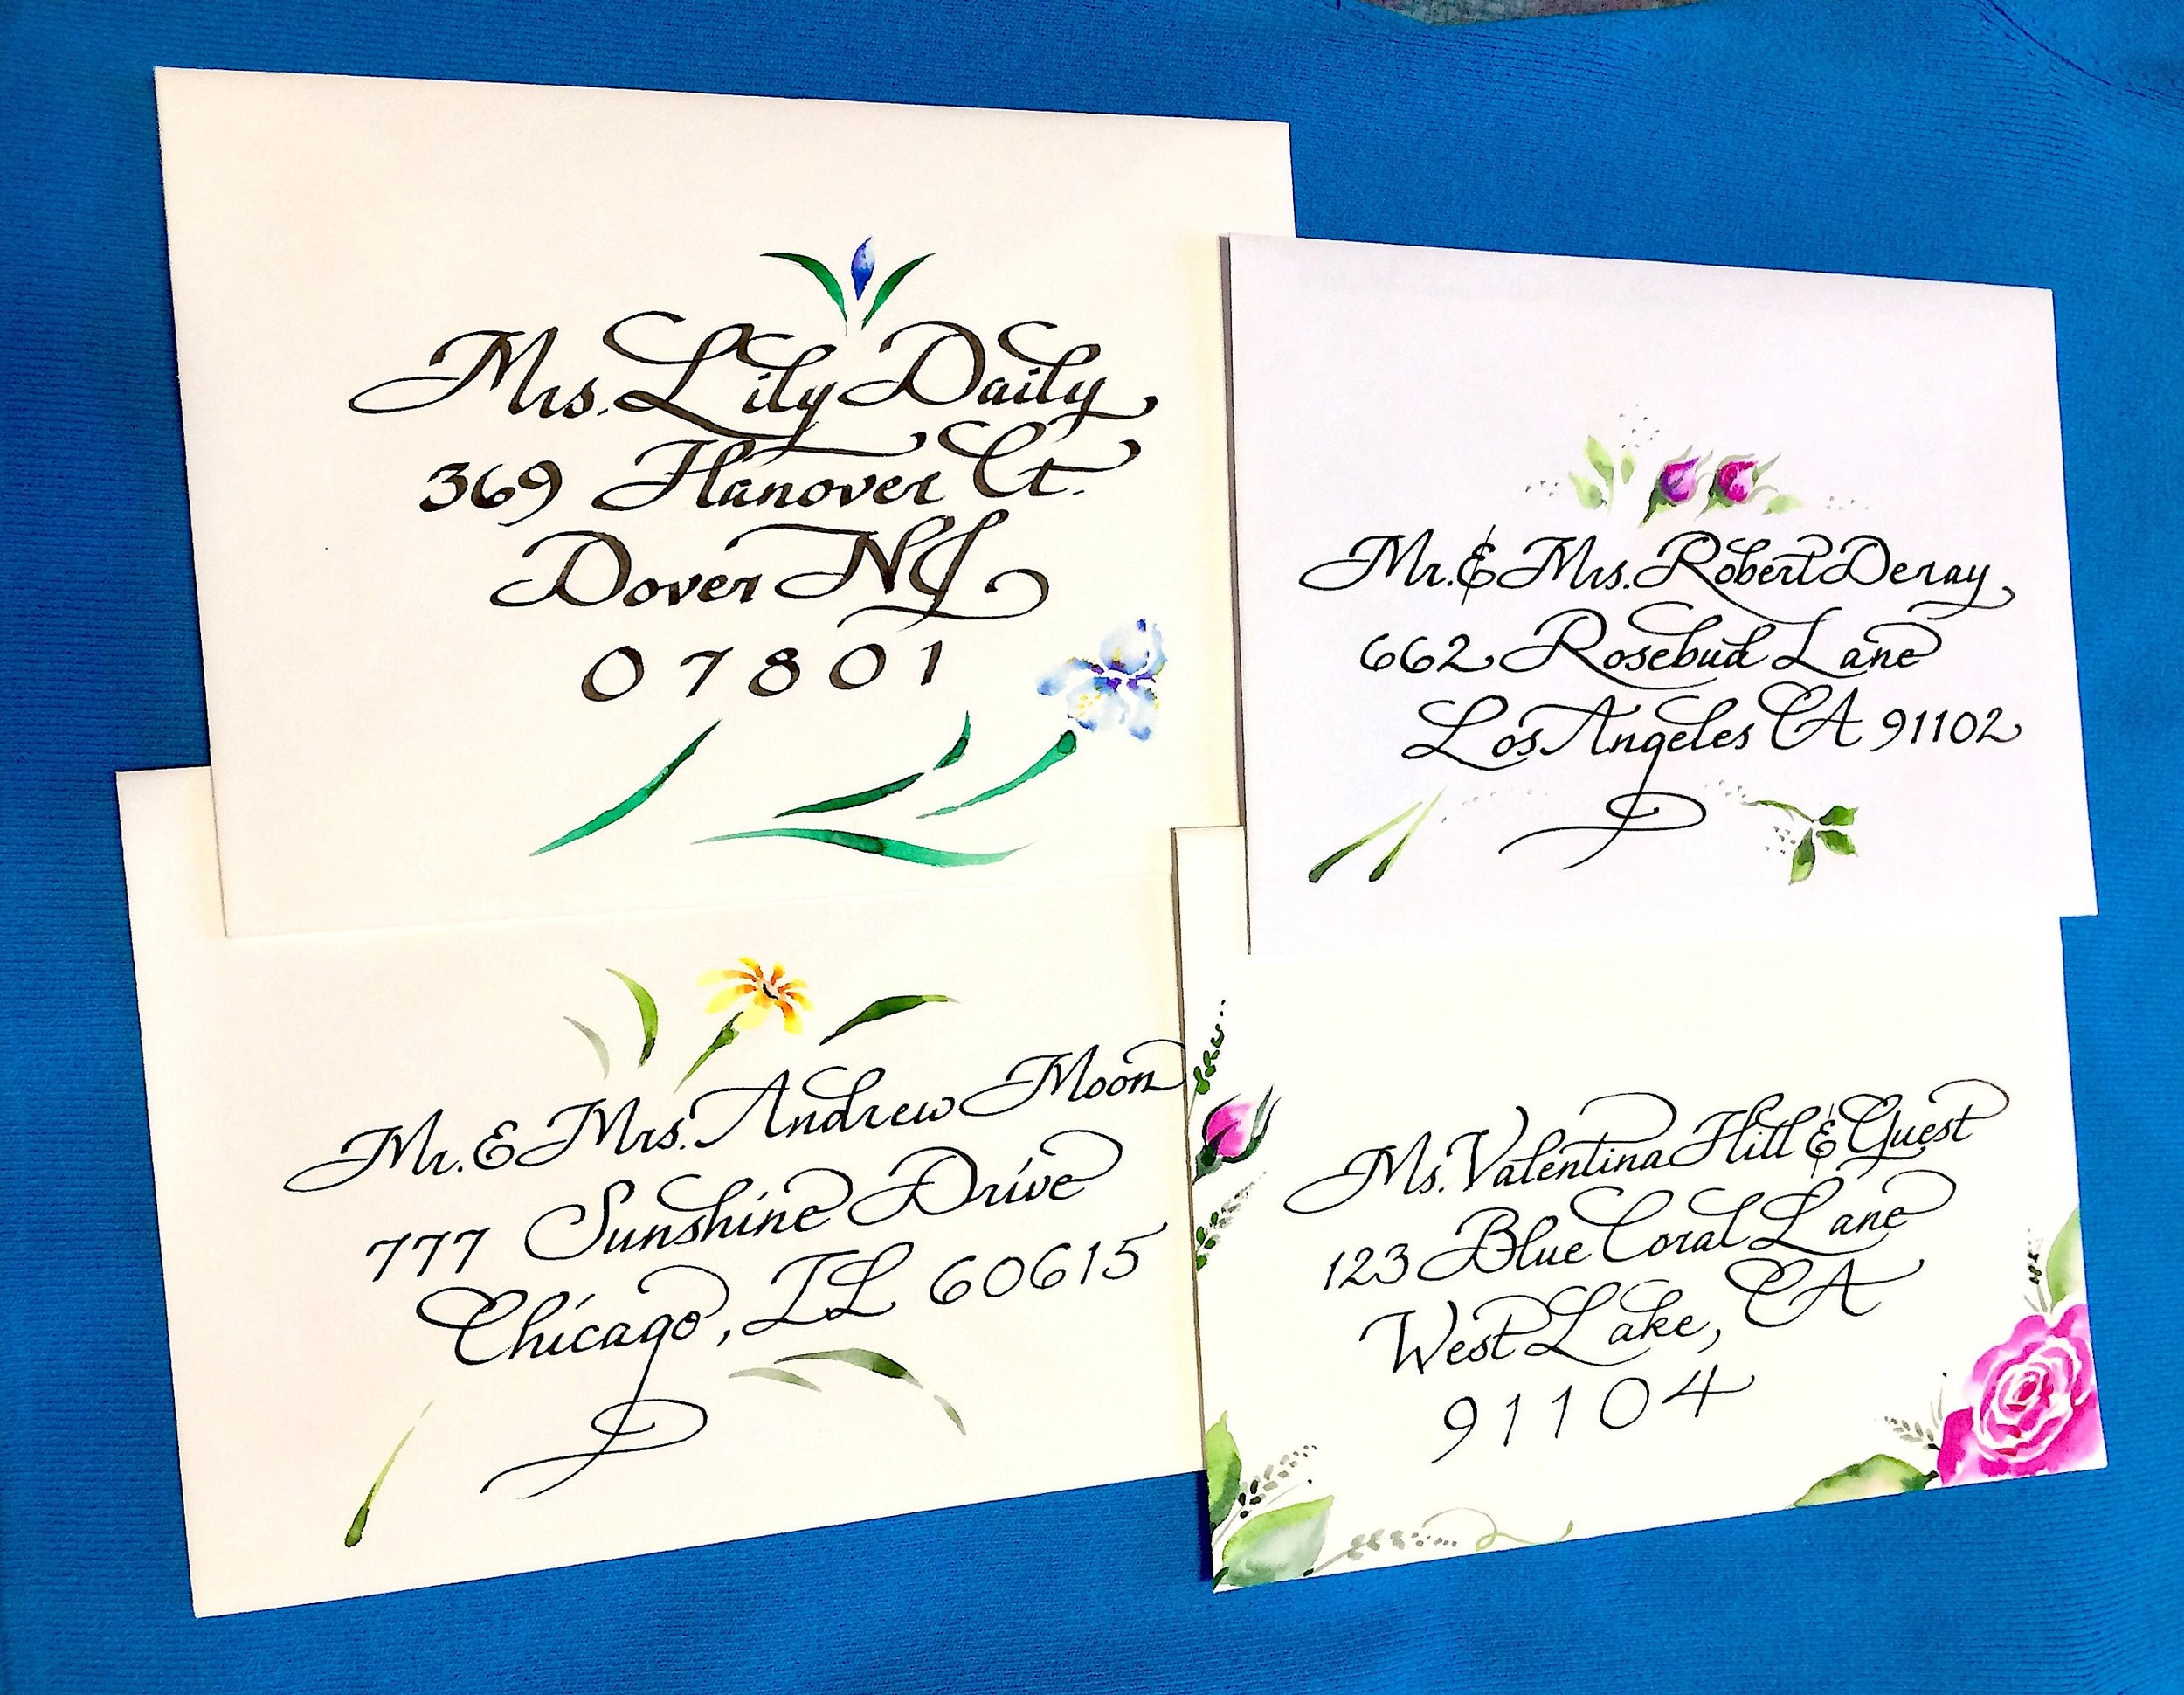 Mrs. Lily Daily
369 Hanover Ct.
Dover NJ
07801
Mr. & Mrs. Robert Deray
662 Rosebud Lane
Los Angeles CA 91102
Mr. & Mrs. Andrew Moon
777 Sunshine Drive
Chicago, IL 60615
Ms. Valentina Hill & Guest
123 Blue Coral Lane
West Lake, CA
91104